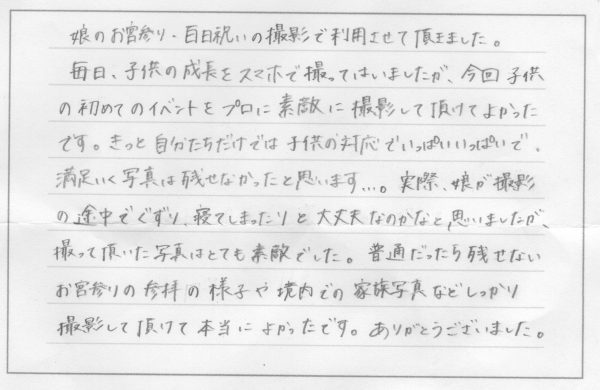 娘のお宮参り・百日祝いの撮影で利用させて頂きました。
毎日、子供の成長をスマホで撮ってはいましたが、今回子供
の初めてのイベントをプロに素敵に撮影して頂けてよかった
です。きっと自分たちだけでは子供の対応でいっぱいいっぱいで、
満足いく写真は残せなかったと思います…。実際、娘が撮影
の途中でぐずり、寝てしまったりと大丈夫なのかなと思いましたが、
撮って頂いた写真はとても素敵でした。普通だったら残せない
お宮参りの参拝の様子や境内での家族写真などしっかり
撮影して頂けて本当によかったです。ありがとうございました。